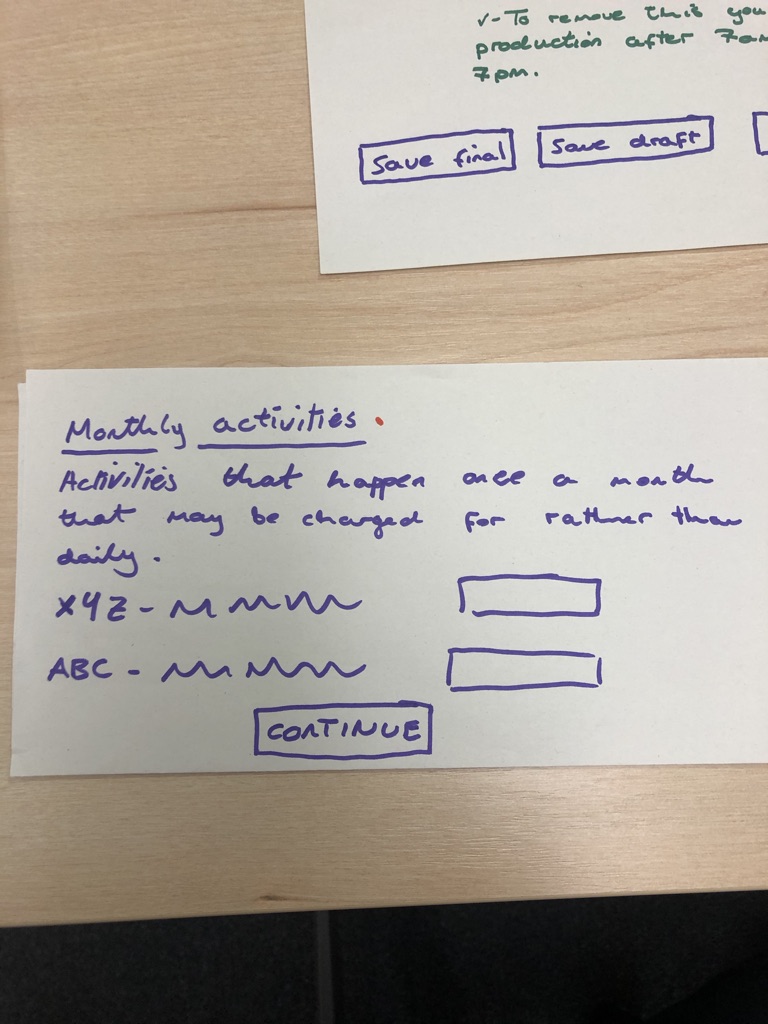 ✓-To remove this you
production after 7am
7pm.
Save final
Save draft
Monthly activities
Activities that happen once a month
that may be charged for rather than
daily.
XYZ -
ABC -
CONTINUE